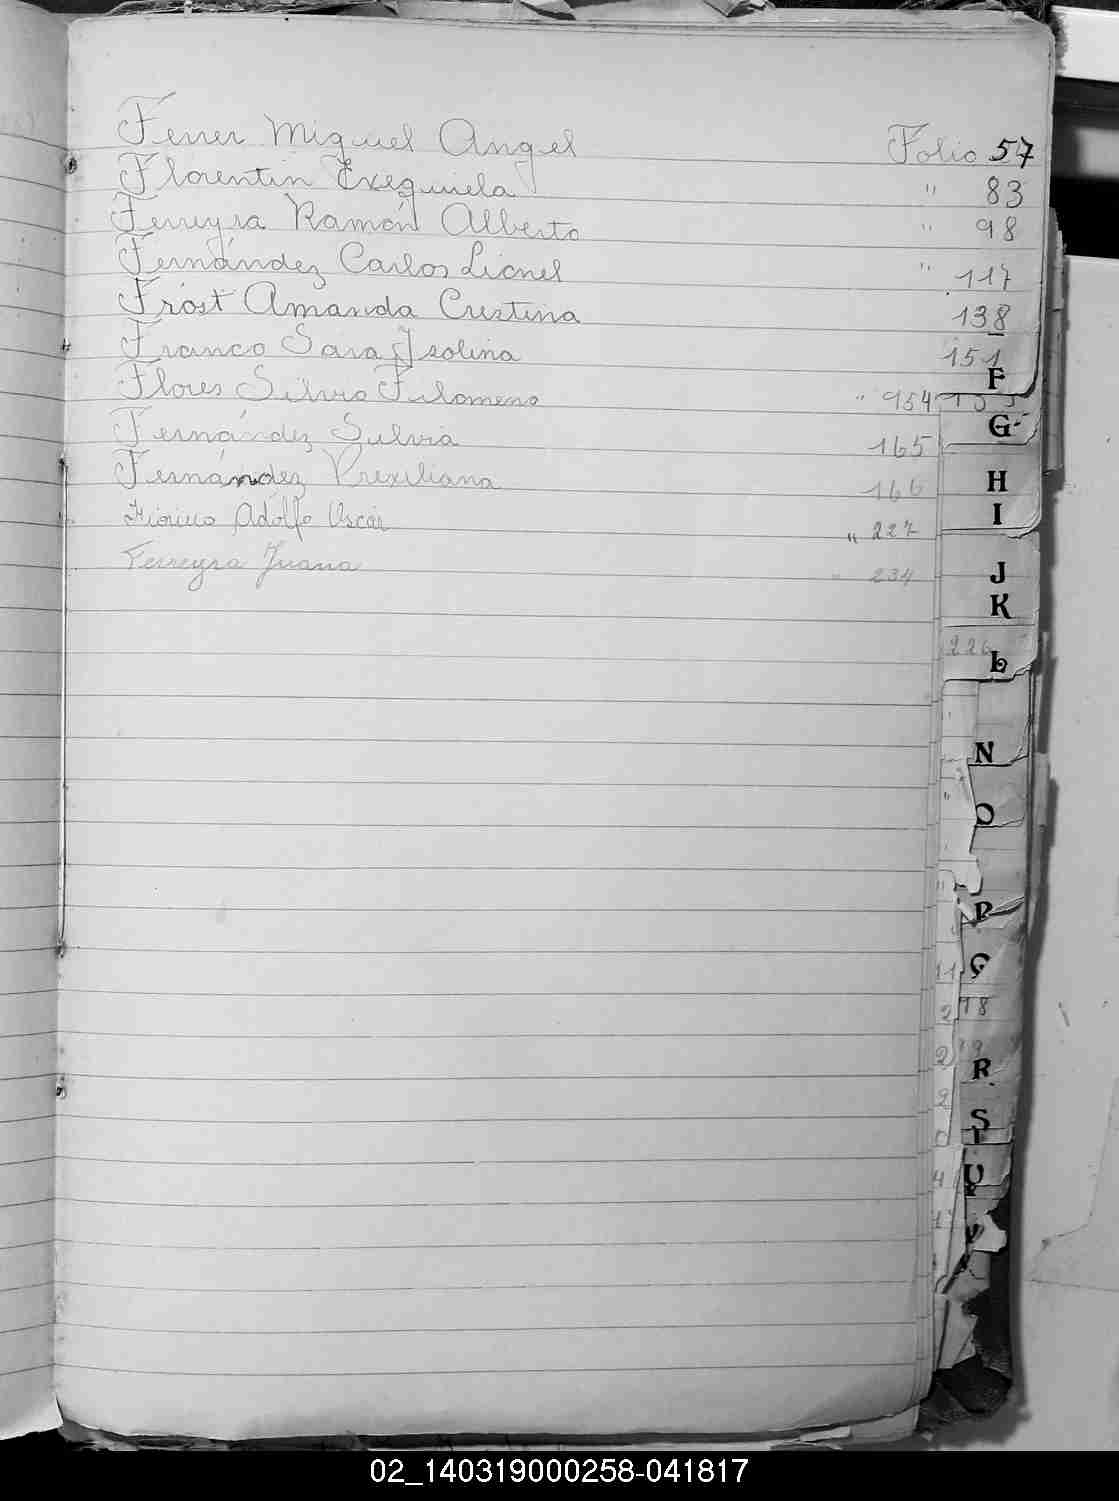 Ferrer Miguel Angel Folio 57
Florentin Exequiela " 83
Ferreyra Ramón Alberto " 98
Fernández Carlos Lionel " 117
Frost Amanda Cristina 138
Franco Sara Isolina 151
F
Flores Silvia Filomena " 954
G
Fernández Silvia 165
Fernández Prexiliana 166
H
I
Adolfo Oscar " 227
Ferreyra Juana " 234
J
K
226
L
N
O
P
Q
18
R
S
U
V
02_140319000258-041817